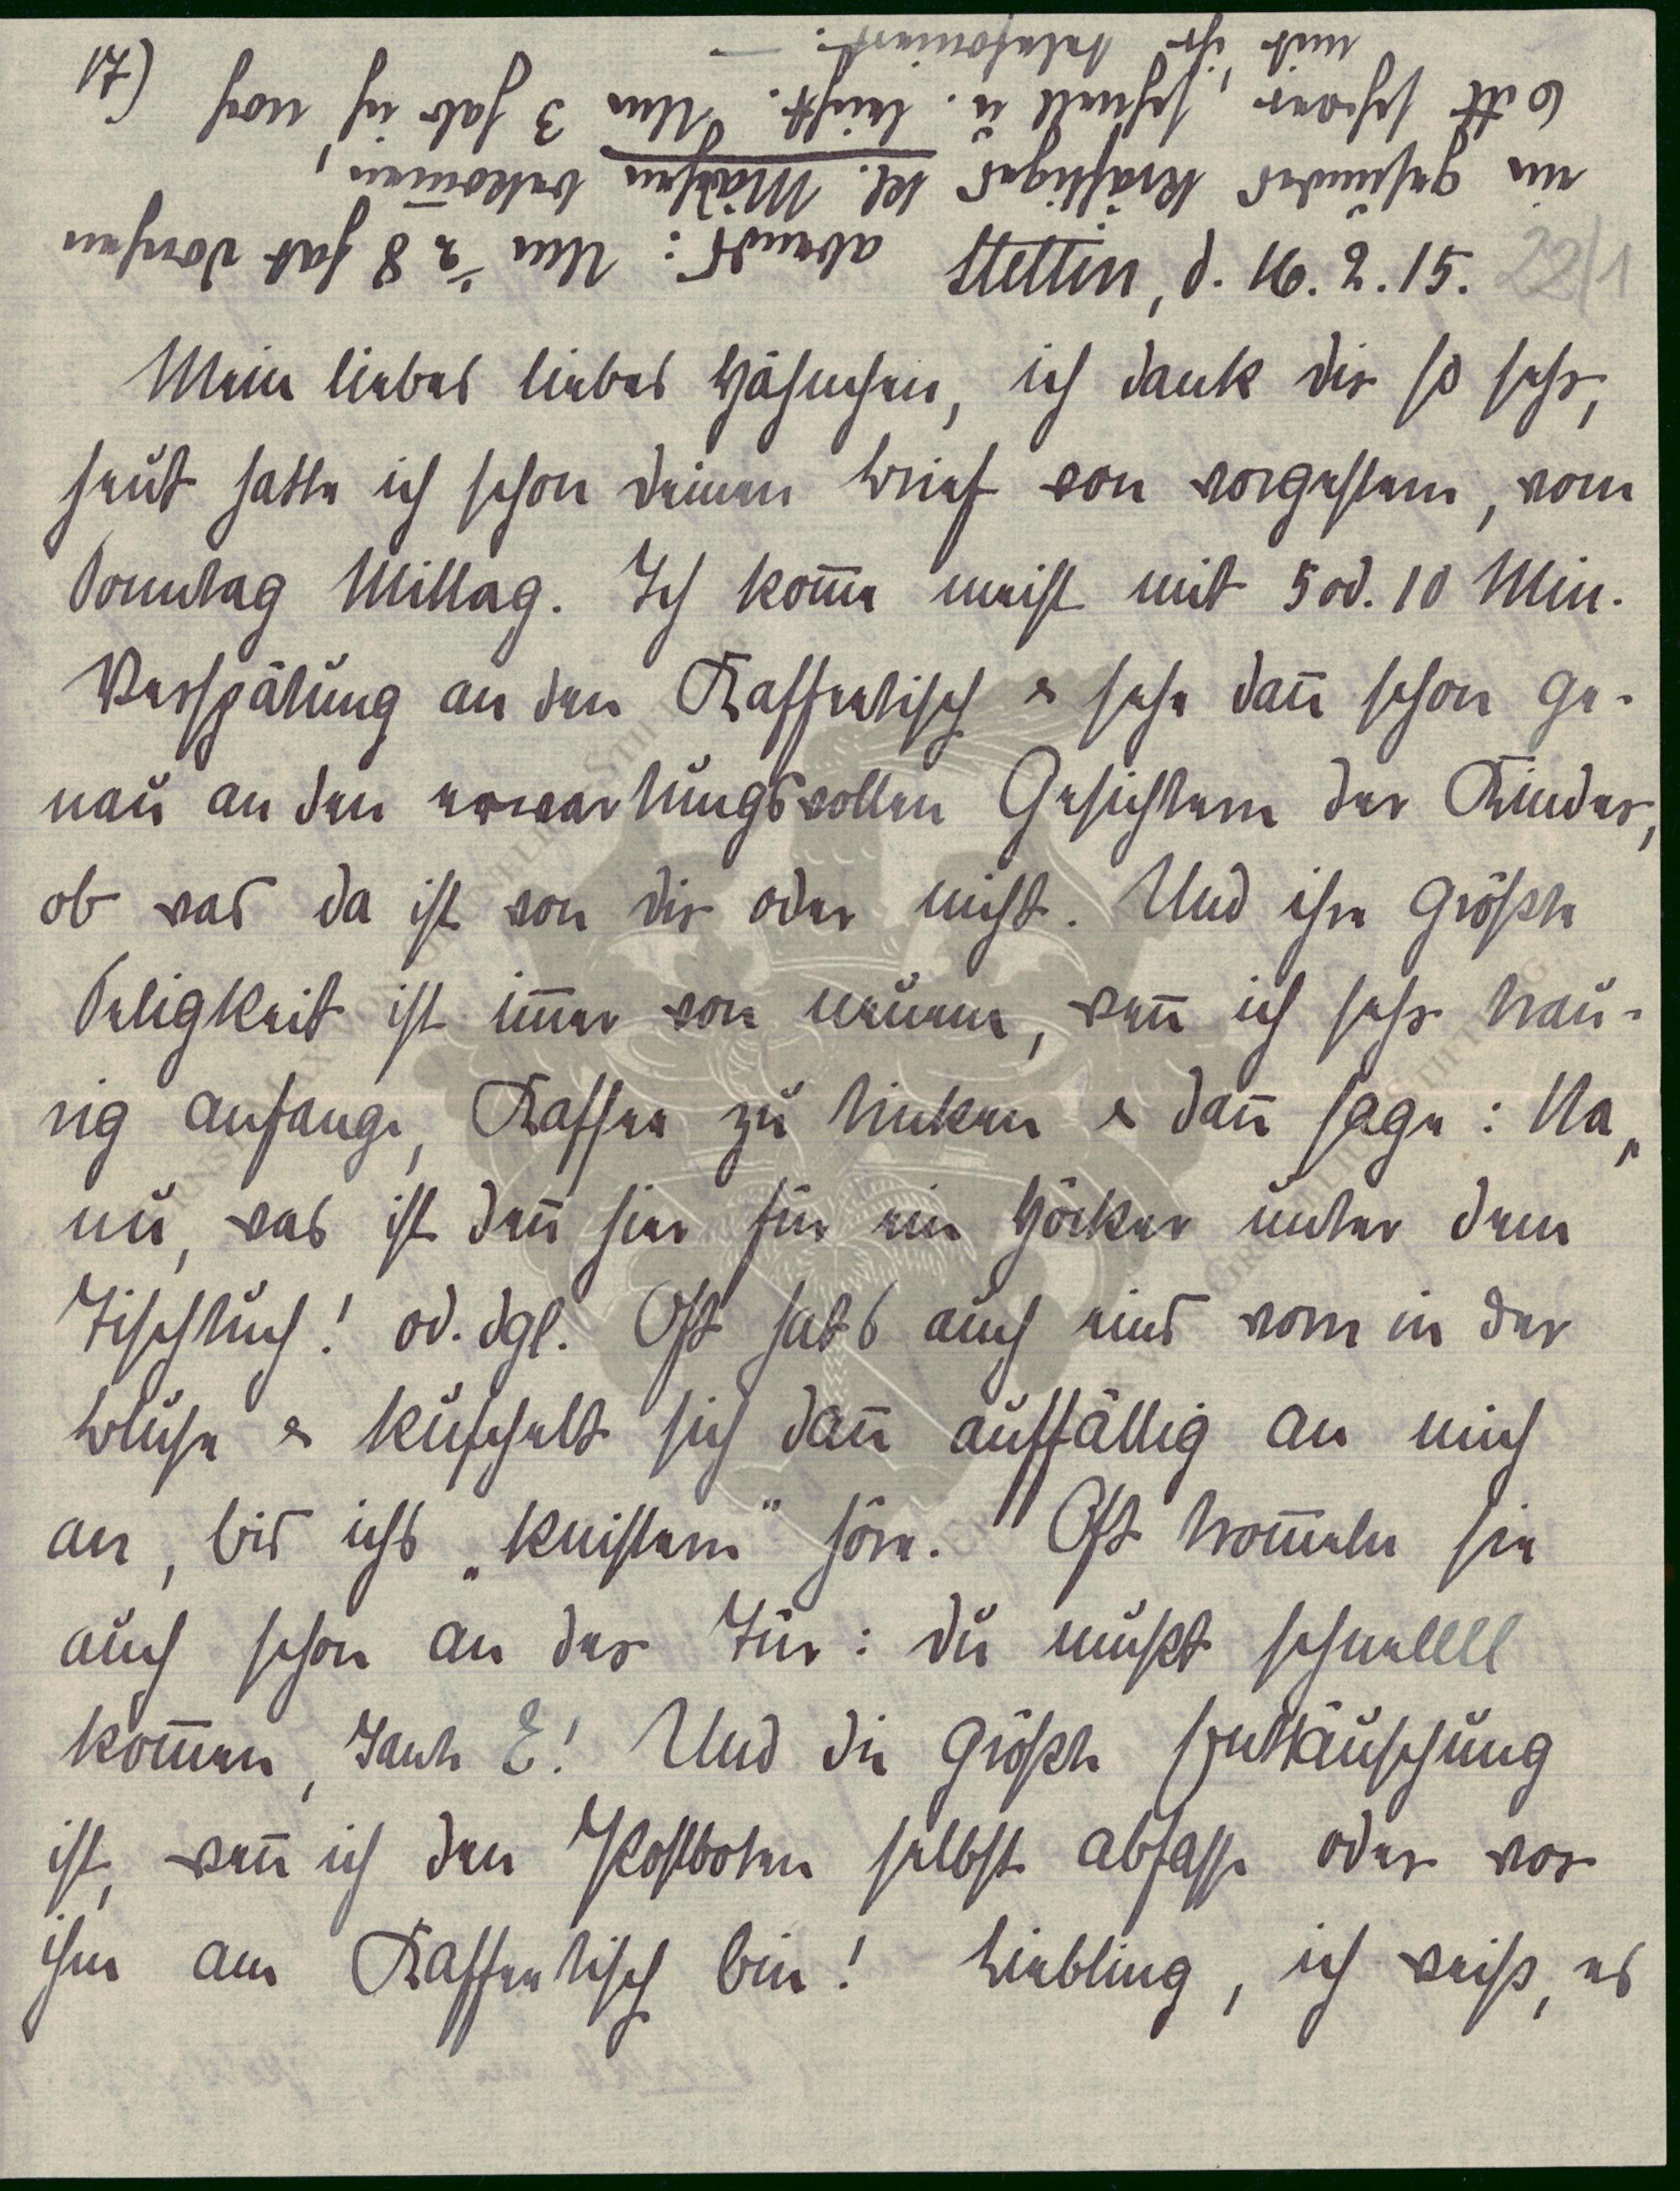 Stettin, d. 16. 2. 15.
22/1
Mein liebes liebes Häschen, ich dank dir so sehr,
heut hatte ich schon deinen Brief von vorgestern, vom
Sonntag Mittag. Ich kom̄e meist mit 5 od. 10 Min.
Verspätung an den Kaffeetisch & sehe dan̄ schon ge-
nau an den erwartungsvollen Gesichtern der Kinder,
ob was da ist von dir oder nicht. Und ihre größte
Seligkeit ist im̄er von neuem, wen̄ ich sehr trau-
rig anfange, Kaffee zu trinken & dan̄ sage: Na„
nu, was ist den̄ hier für ein Höcker unter dem
Tischtuch! od. dgl. Oft hats auch eins vorn in der
Bluse & kuschelt sich dan̄ auffällig an mich
an, bis ichs „knistern" höre. Oft trom̄eln sie
auch schon an der Tür: du mußt schnellll
kom̄en, Tante E! Und die größte Enttäuschung
ist, wen̄ ich den Postboten selbst abfasse oder vor
ihm am Kaffeetisch bin! Liebling, ich weiß, es
abends: Um ½ 8 hat Dorchen
ein gesundes kräftiges kl. Mädchen bekom̄en,
6 ℔ schwer, schnell u. leicht. Um 3 hab ich noch (71
mit ihr telefoniert. —